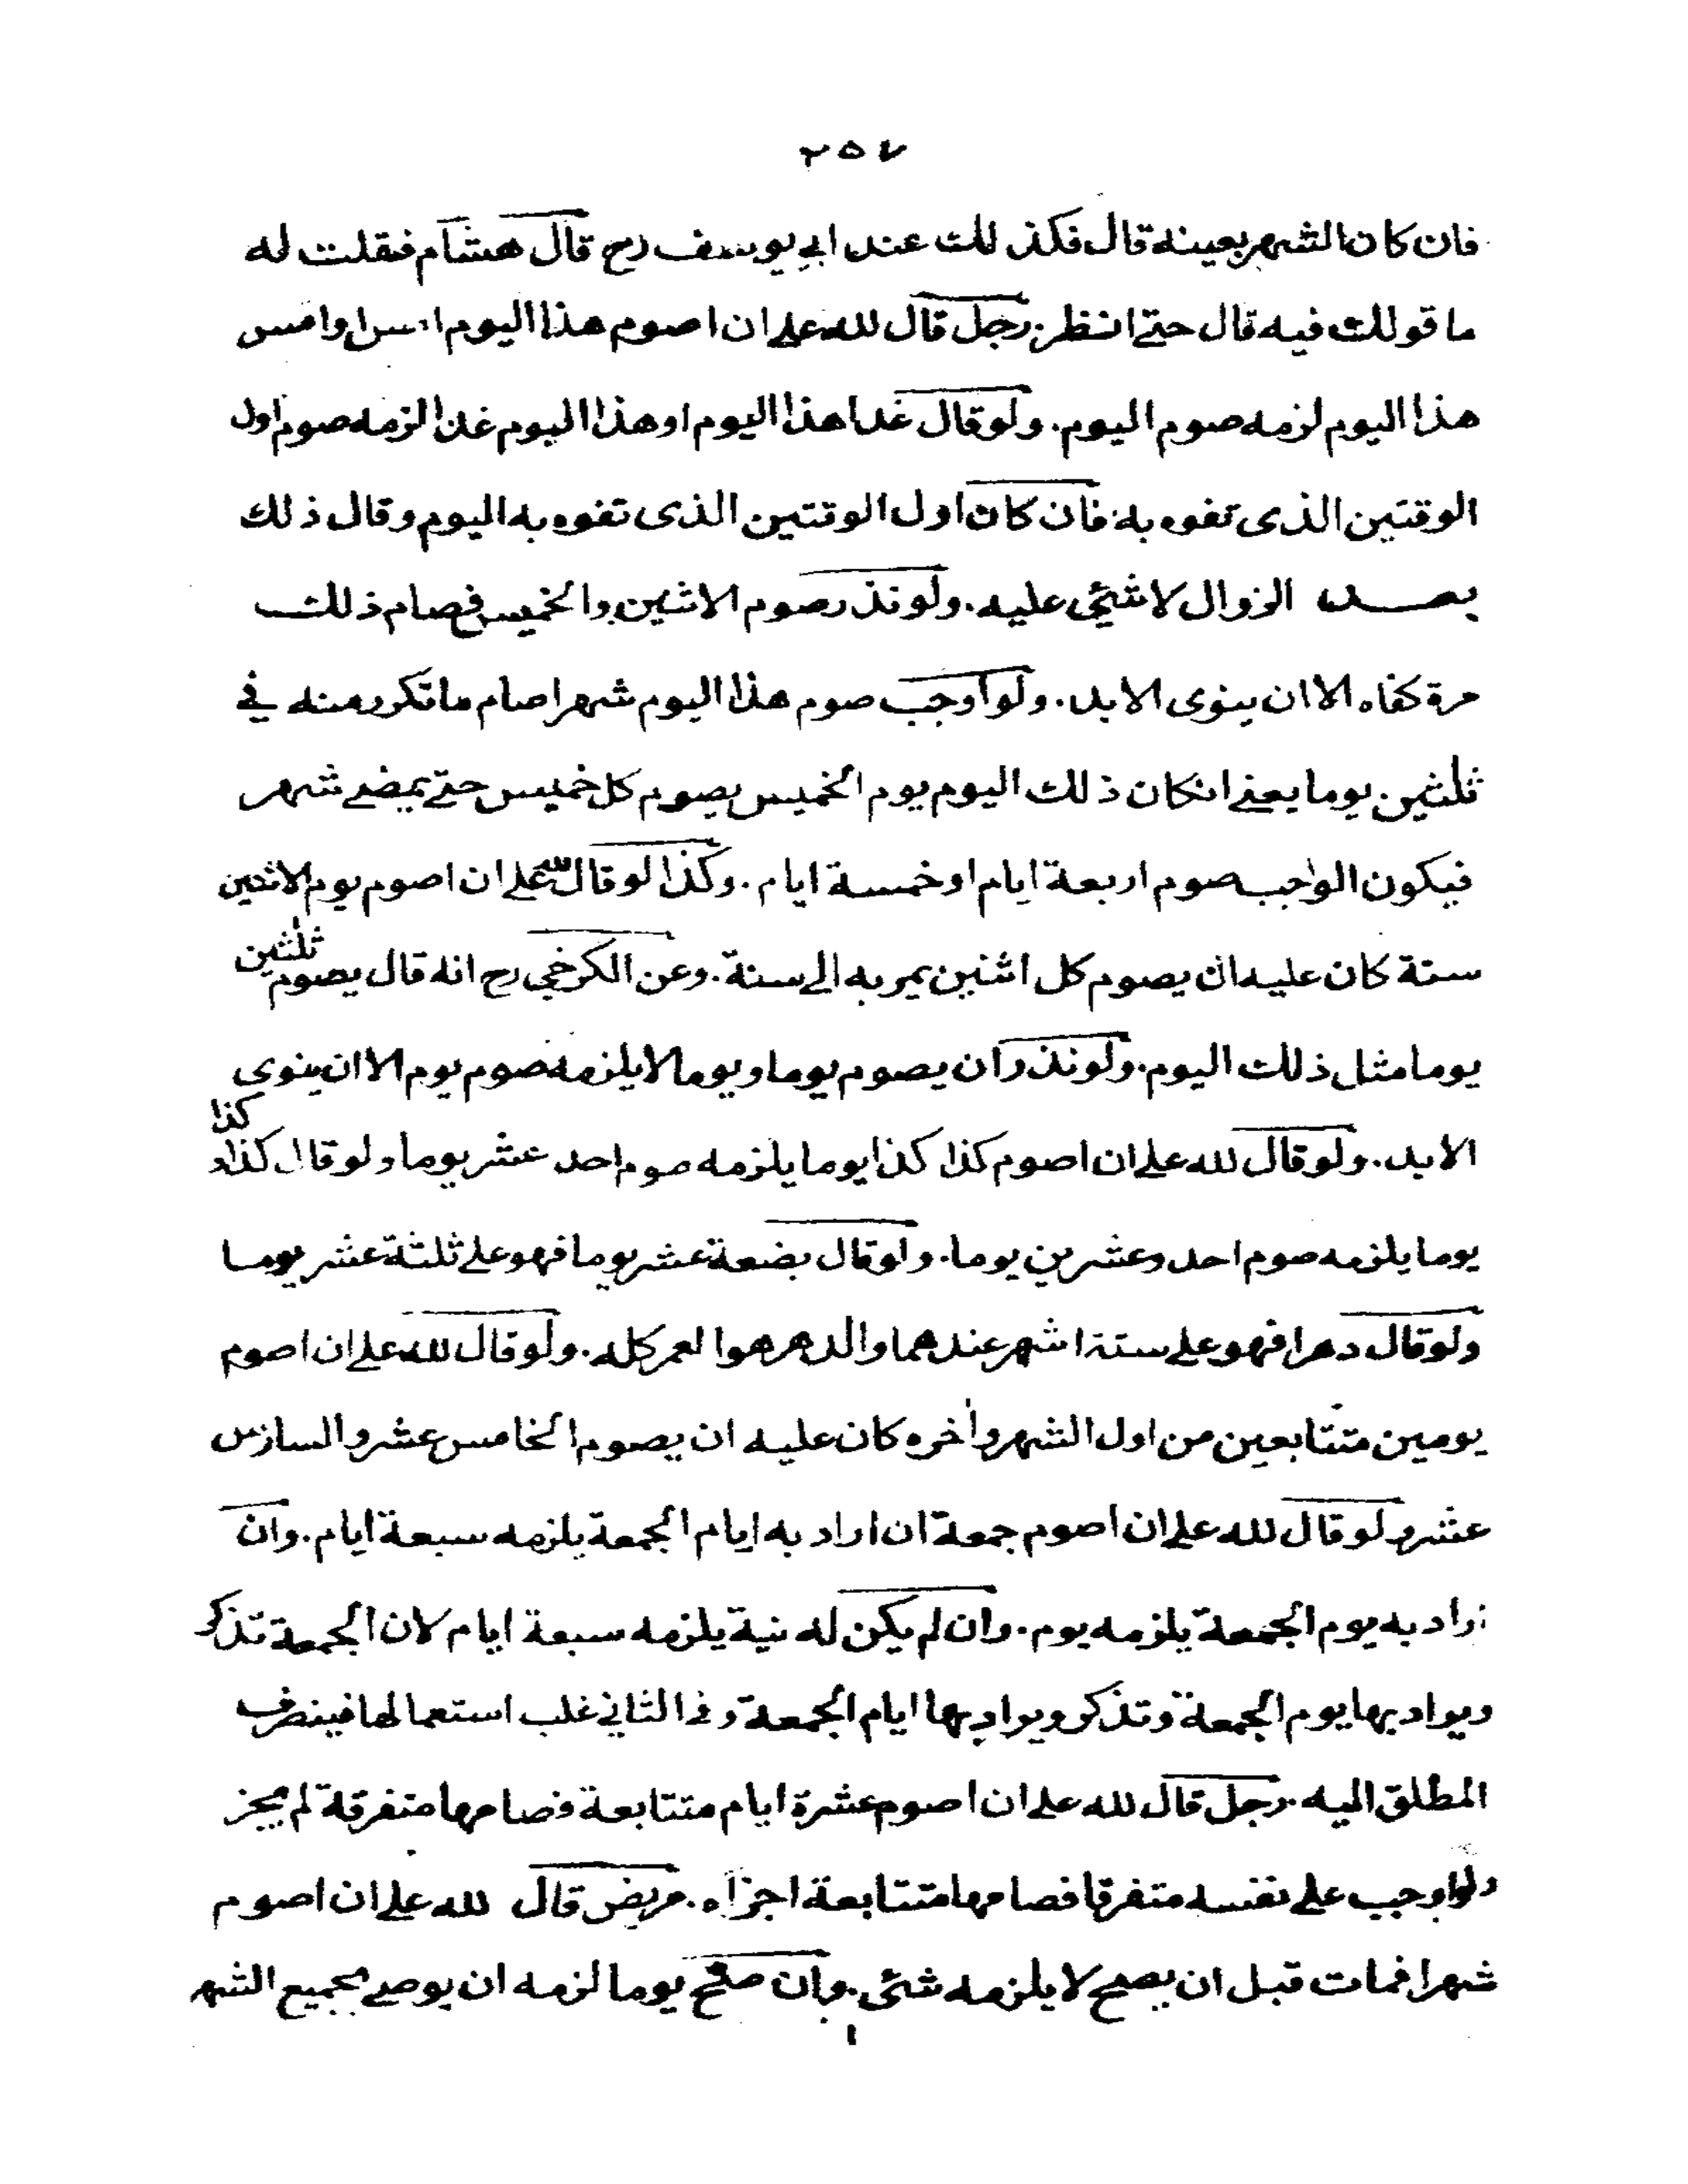 ٢٥٧
فان كان الشهر بعينه قال فكذلك عند ابى يوسف رح قال هشام فقلت له
ما قولك فيه قال حتى انظر. رجل قال لله على ان اصوم هذا اليوم امس او امس
هذا اليوم لزمه صوم اليوم. ولو قال غدا هذا اليوم او هذا اليوم غدا لزمه صوم اول
الوقتين الذى تفوه به فان كان اول الوقتين الذى تفوه به اليوم وقال ذلك
بعد الزوال لا شئى عليه. ولو نذر صوم الاثنين والخميس فصام ذلك
مرة كفاه الا ان ينوى الابد. ولو اوجب صوم هذا اليوم شهرا صام ما تكرر منه فى
ثلثين يوما يعنى انكان ذلك اليوم يوم الخميس يصوم كل خميس حتى يمضى شهر
فيكون الواجب صوم اربعة ايام او خمسة ايام. وكذا لو قال لله على ان اصوم يوم الاثنين
سنة كان عليه ان يصوم كل اثنين يمر به الى سنة. وعن الكرخي رح انه قال يصوم ثلثين
يوما مثل ذلك اليوم. ولو نذر ان يصوم يوما ويوما لا يلزمه صوم يوم الا ان ينوى
الابد. ولو قال لله على ان اصوم كذا كذا يوما يلزمه صوم احد عشر يوما ولو قال كذا وكذا
يوما يلزمه صوم احد وعشرين يوما. ولو قال بضعة عشر يوما فهو على ثلثة عشر يوما
ولو قال دهرا فهو على ستة اشهر عندهما والدهر هو العمر كله. ولو قال لله على ان اصوم
يومين متتابعين من اول الشهر وأخره كان عليه ان يصوم الخامس عشر والسادس
عشر ولو قال لله على ان اصوم جمعة ان اراد به ايام الجمعة يلزمه سبعة ايام. وان
اراد به يوم الجمعة يلزمه يوم. وان لم يكن له نية يلزمه سبعة ايام لان الجمعة تذكر
ويراد بها يوم الجمعة وتذكر ويراد بها ايام الجمعة وفى الثاني غلب استعمالها فينصرف
المطلق اليه. رجل قال لله على ان اصوم عشرة ايام متتابعة فصامها متفرقة لم يجز
ولو اوجب على نفسه متفرقا فصامها متتابعة اجزأه. مريض قال لله على ان اصوم
شهرا فمات قبل ان يصح لا يلزمه شئى. وان صح يوما لزمه ان يوصى بجميع الشهر